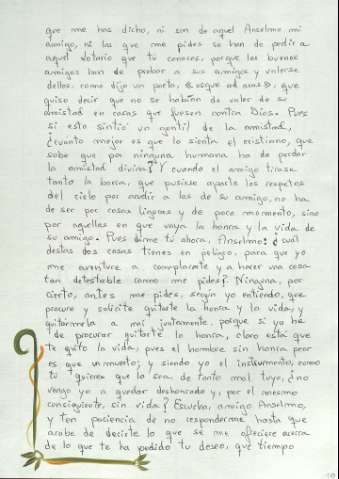 que me has dicho, ni son de aquel Anselmo mi
amigo, ni las que me pides se han de pedir a
aquel Lotario que tú conoces, porque los buenos
amigos han de probar a sus amigos y valerse
dellos, como dijo un poeta, «usque ad aras», que
quiso decir que no se habían de valer de su
amistad en cosas que fuesen contra Dios. Pues
si esto sintió un gentil de la amistad,
¿cuánto mejor es que lo sienta el cristiano, que
sabe que por ninguna humana ha de perder
la amistad divina? Y cuando el amigo tirase
tanto la barra, que pusiese aparte los respetos
del cielo por acudir a los de su amigo, no ha
de ser por cosas ligeras y de poco momento, sino
por aquellas en que vaya la honra y la vida de
su amigo. Pues dime tú ahora, Anselmo: ¿cuál
destas dos cosas tienes en peligro, para que yo
me aventure a complacerte y a hacer una cosa
tan detestable como me pides? Ninguna, por
cierto, antes me pides, según yo entiendo, que
procure y solicite quitarte la honra y la vida, y
quitármela a mí juntamente, porque si yo he
de procurar quitarte la honra, claro está que
te quito la vida, pues el hombre sin honra peor
es que un muerto; y siendo yo el instrumento, como
tú quieres que lo sea, de tanto mal tuyo, ¿no
vengo yo a quedar deshonrado y, por el mesmo
consiguiente, sin vida? Escucha, amigo Anselmo,
y ten paciencia de no responderme hasta que
acabe de decirte lo que se me ofreciere acerca
de lo que te ha pedido tu deseo, que tiempo